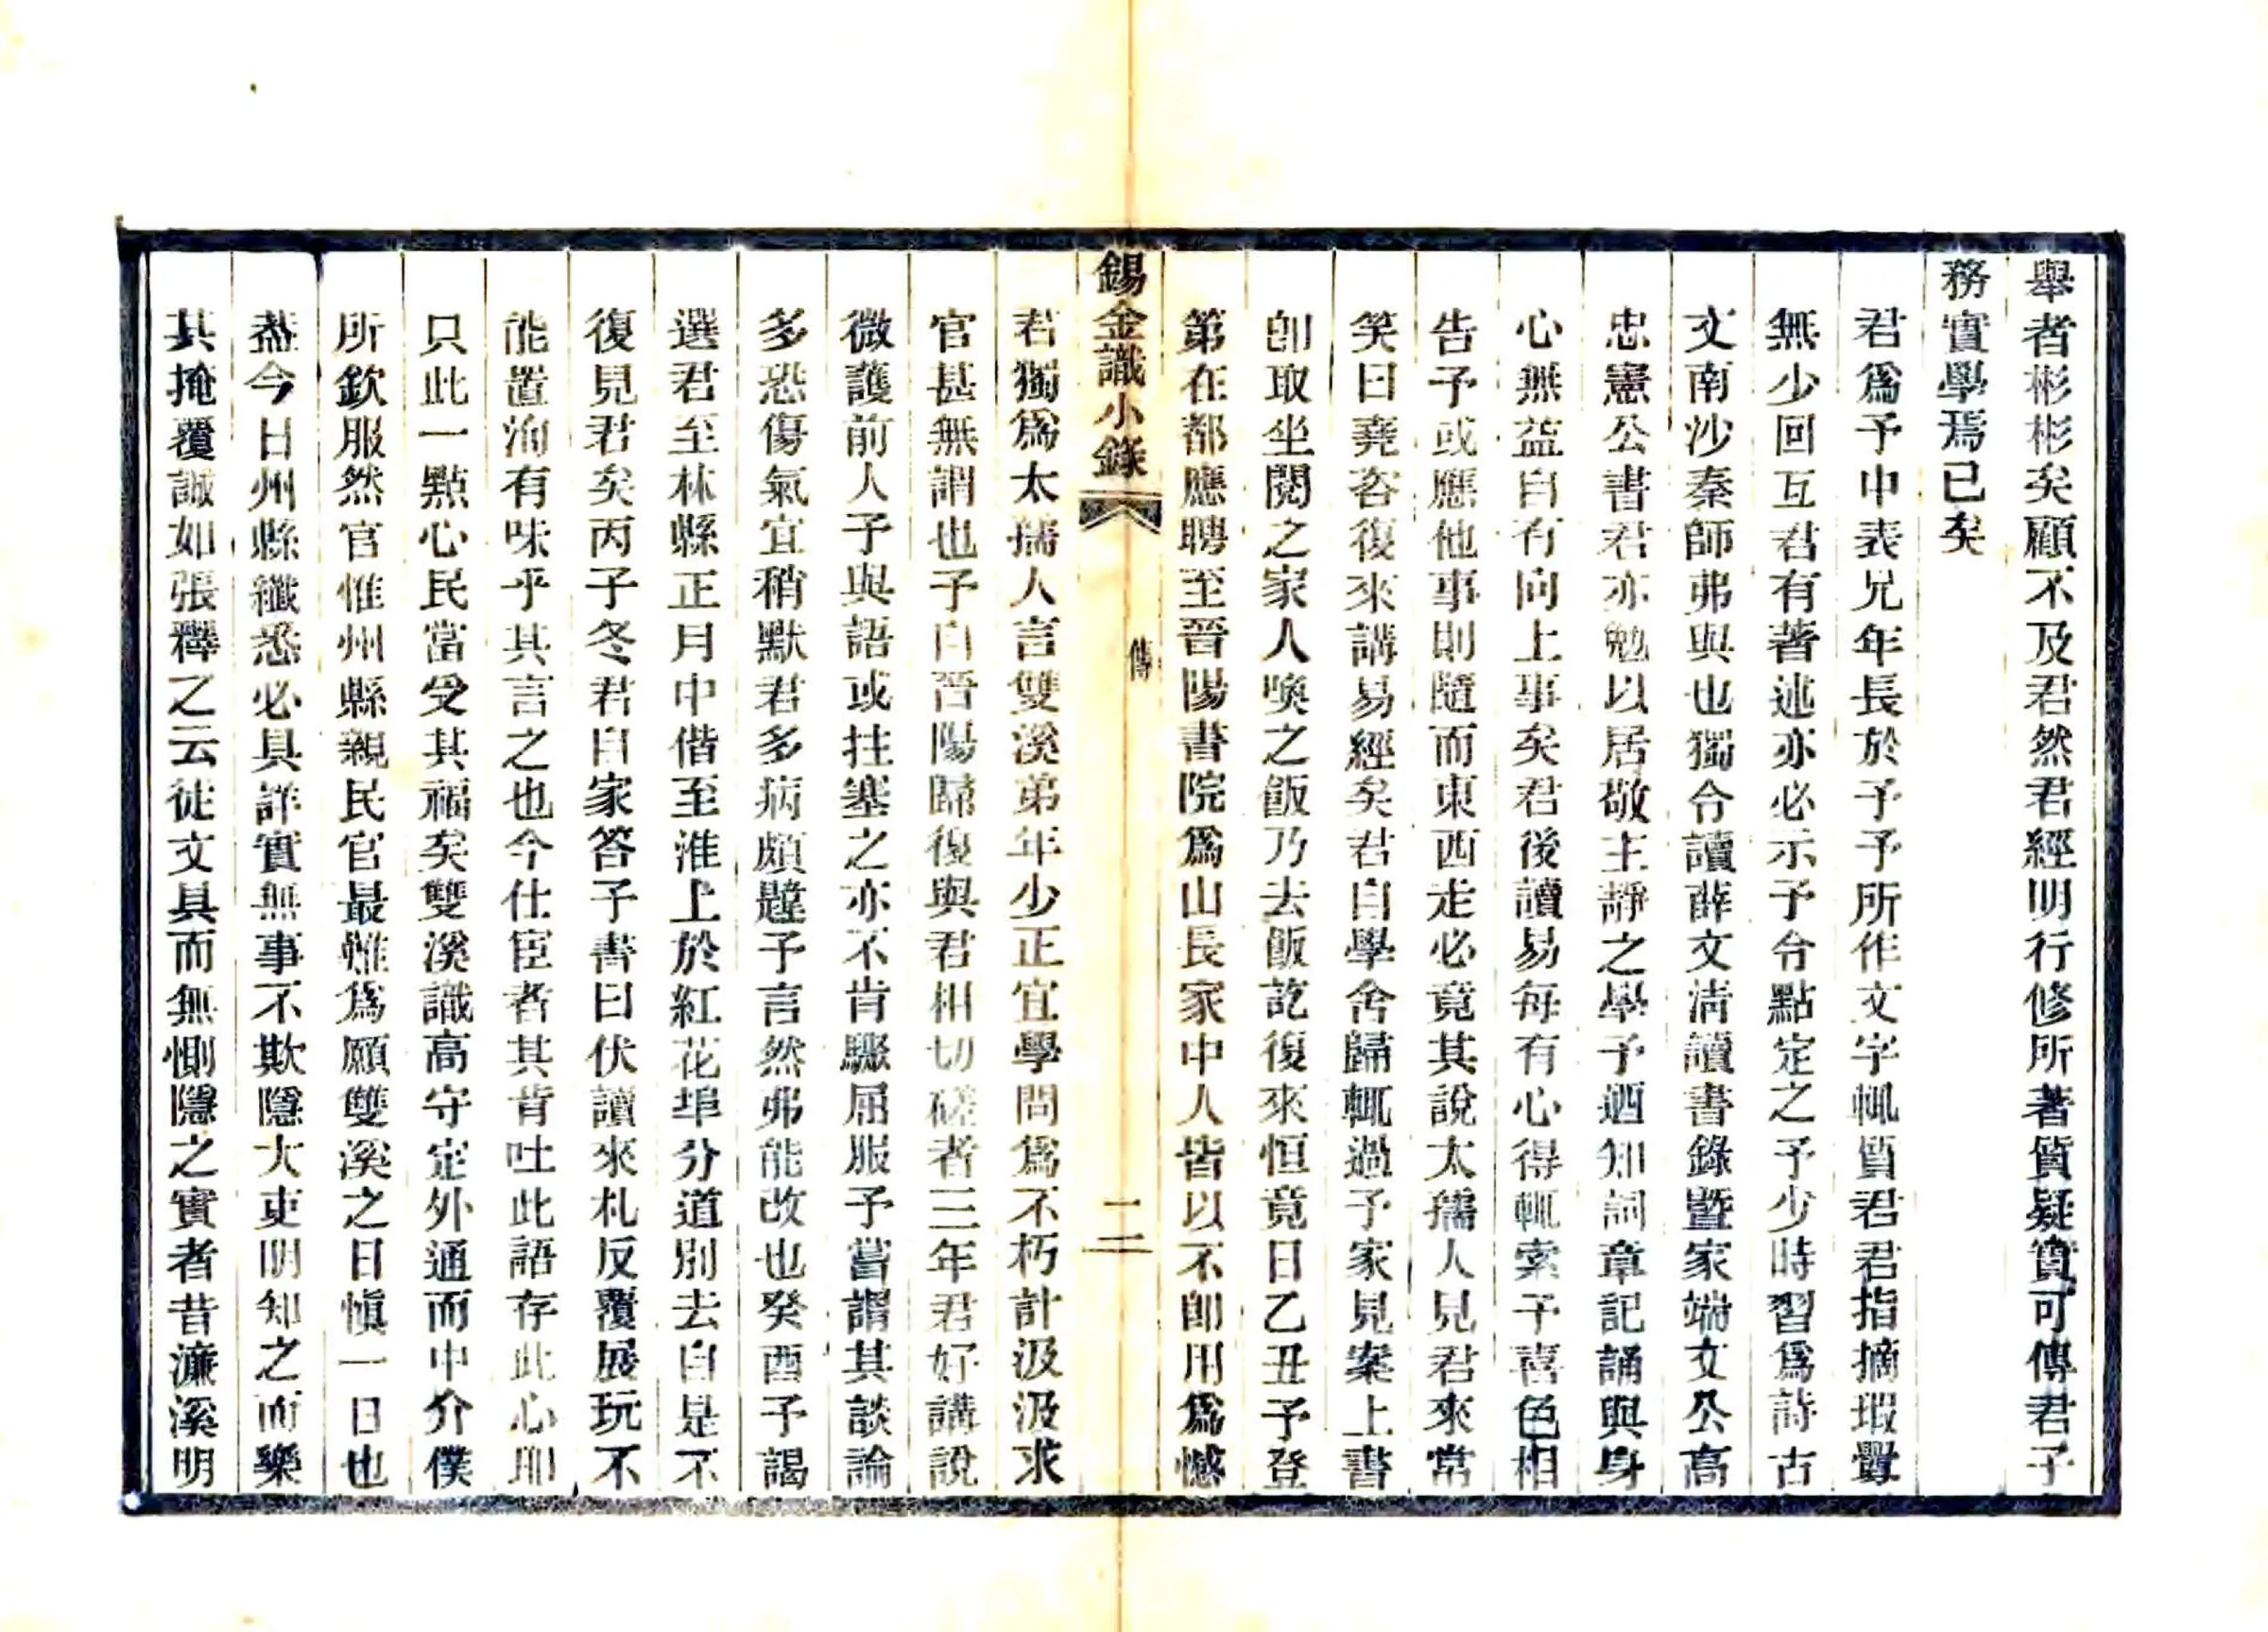 舉者彬彬矣顧不及君然君經明行修所著質疑實可傳君子
務實學焉已矣
君爲予中表兄年長於予予所作文字輒質君君指摘瑕釁
無少回互君有著述亦必示予令點定之予少時習爲詩古
文南沙秦師弗與也獨令讀薛文淸讀書錄曁家端文公高
忠憲公書君亦勉以居敬主靜之學予迺知詞章記誦與身
心無益自有向上事矣君後讀易每有心得輒索予喜色相
告予或應他事則隨而東西走必竟其說太孺人見君來常
笑曰堯咨復來講易經矣君自學舍歸輒過予家見案上書
卽取坐閱之家人喚之飯乃去飯訖復來恒竟日乙丑予登
第在都應聘至晉陽書院爲山長家中人皆以不卽用爲憾
錫金識小錄
傳
二
君獨爲太孺人言雙溪弟年少正宜學問爲不朽計汲汲求
官甚無謂也予自晉陽歸復與君相切磋者三年君好講說
微護前人予與語或拄塞之亦不肯驟屈服予嘗謂其談論
多恐傷氣宜稍默君多病頗韙予言然弗能改也癸酉予謁
選君至林縣正月中偕至淮上於紅花埠分道別去自是不
復見君矣丙子冬君自家答予書曰伏讀來札反覆展玩不
能置洵有味乎其言之也今仕宦者其肯吐此語存此心耶
只此一點心民當受其福矣雙溪識高守定外通而中介僕
所欽服然官惟州縣親民官最難爲願雙溪之日愼一日也
葢今日州縣纖悉必具詳實無事不欺隱大吏明知之而樂
其掩覆誠如張釋之云徒文具而無惻隱之實者昔濂溪明